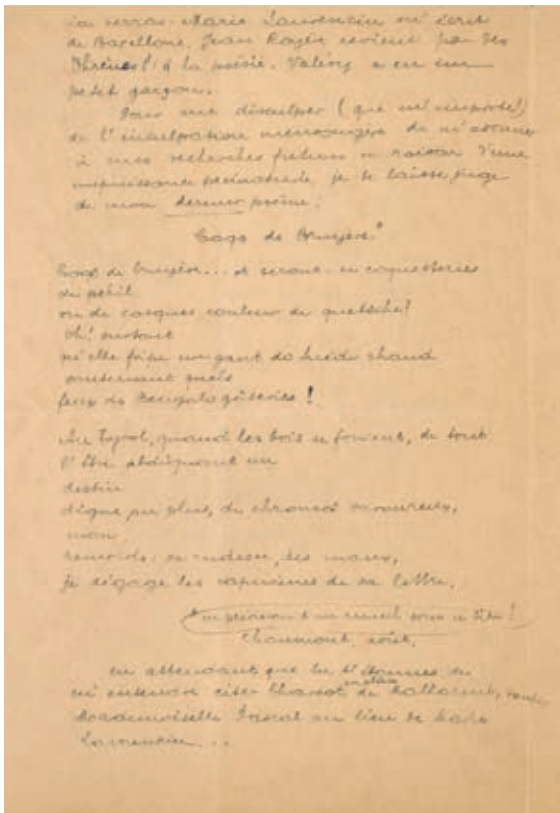 tu verras. Marie Laurencin m'écrit
de Barcelone. Jean Royère revient par ses
Thrènes! à la poésie. Valéry a eu un
petit garçon.
Pour me disculper (que m'importe!)
de l'inculpation mensongère de m'
à mes recherches en raison d'une
impuissance prématurée, je te laisse juge
de mon dernier poème:
Coqs de Bruyère*
Coqs de bruyère... et seront-ce coquetteries
de péril
ou de casques couleur de quetsche?
Oh! surtout
qu'elle fripe un gant de Suède chaud
soutenant quels
feux de Bengale gâteries!
Au Tyrol, quand les bois se foncent, de tout
l'être abdiquant un
destin
digne, au plus, de chromos savoureux,
mon
remords: sa rudesse, des maux,
je dégage les capucines de sa lettre.
* en préparation un recueil sous ce titre!
Chaumont, août.
en attendant que tu t'étonnes de
m'entendre citer Charlot au lieu de Mallarmé,
Mademoiselle Pascal au lieu de Marie
Laurencin...